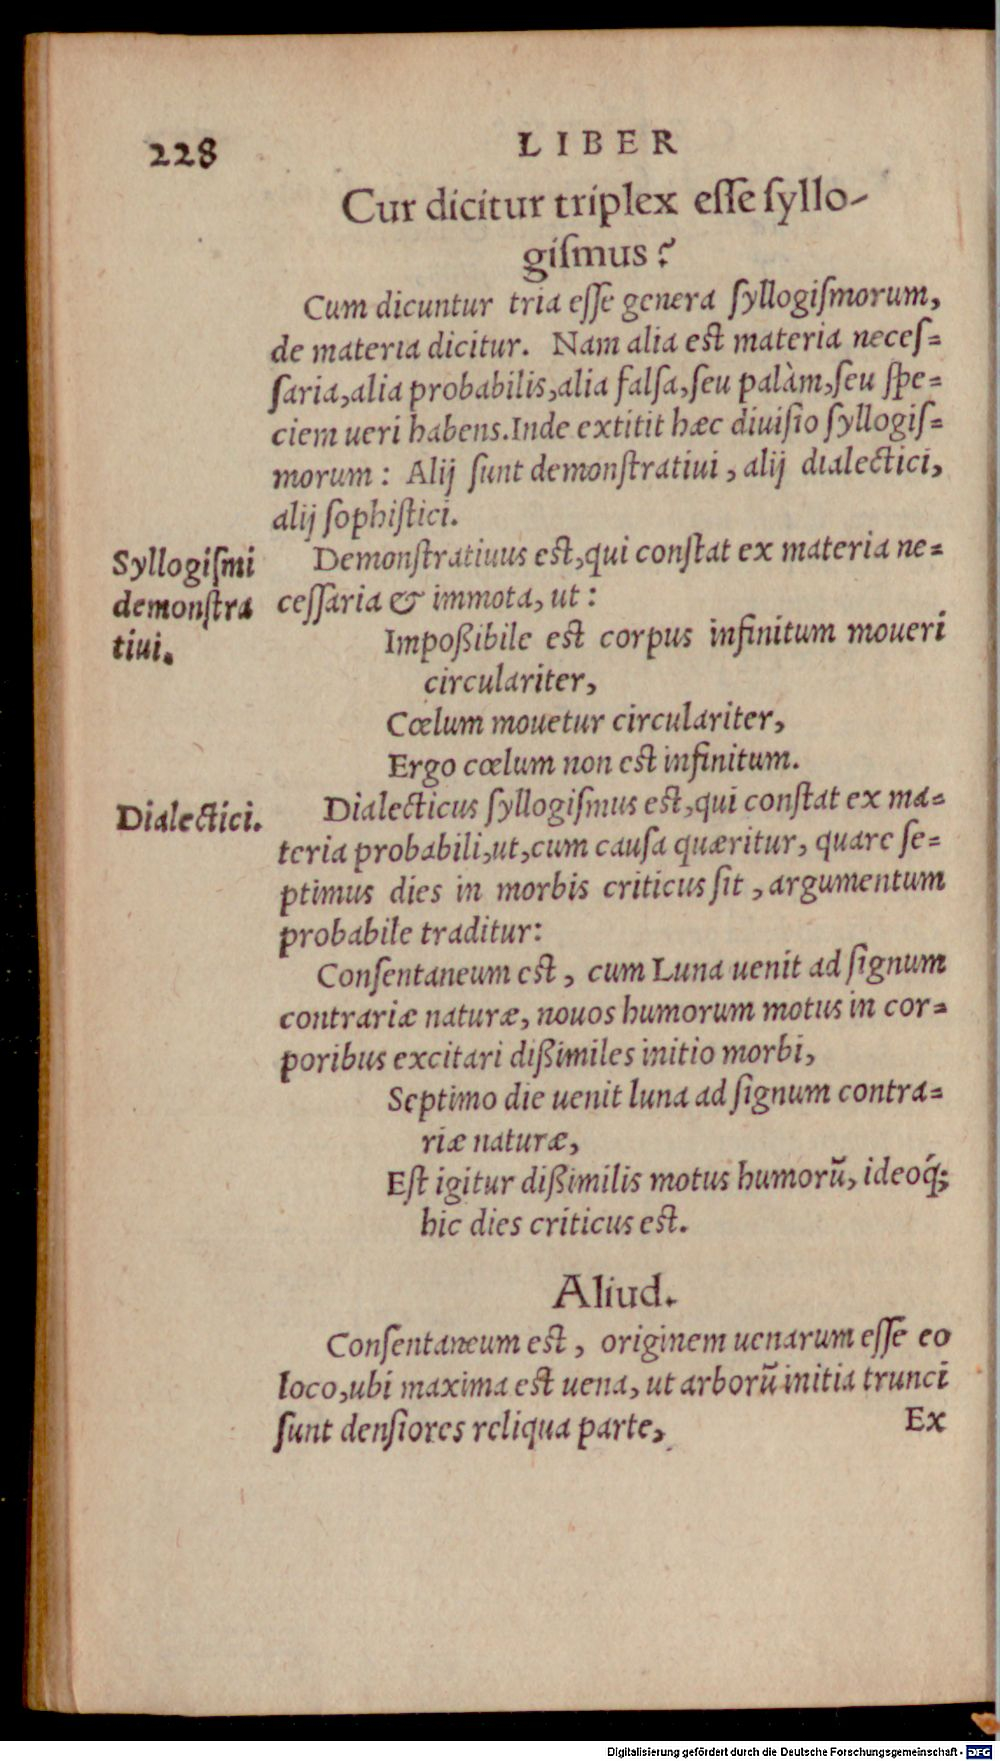 228
LIBER
Cur dicitur triplex eſſe ſyllo-
giſmus?
Cum dicuntur tria eſſe genera ſyllogiſmorum,
de materia dicitur. Nam alia est materia neceſ=
ſaria, alia probabilis, alia falſa, ſeu palàm, ſeu ſpe=
ciem ueri habens. Inde extitit hæc diuiſio ſyllogiſ=
morum: Alij ſunt demonſtratiui, alij dialectici,
alij ſophiſtici.
Syllogiſmi
demonſtra
tiui.
Demonſtratiuus est, qui conſtat ex materia ne=
ceſſaria & immota, ut:
Impoßibile est corpus infinitum moueri
circulariter,
Cœlum mouetur circulariter,
Ergo cœlum non est infinitum.
Dialectici.
Dialecticus ſyllogiſmus est, qui conſtat ex ma=
teria probabili, ut, cum cauſa quæritur, quare ſe=
ptimus dies in morbis criticus ſit, argumentum
probabile traditur:
Conſentaneum est, cum Luna uenit ad ſignum
contrariæ naturæ, nouos humorum motus in cor=
poribus excitari dißimiles initio morbi,
Septimo die uenit luna ad ſignum contra=
riæ naturæ,
Eſt igitur dißimilis motus humorũ, ideoq́;
hic dies criticus est.
Aliud.
Conſentaneum est, originem uenarum eſſe eo
loco, ubi maxima est uena, ut arborũ initia trunci
ſunt denſiores reliqua parte,
Ex
Digitalisierung gefördert durch die Deutsche Forschungsgemeinschaft - DFG